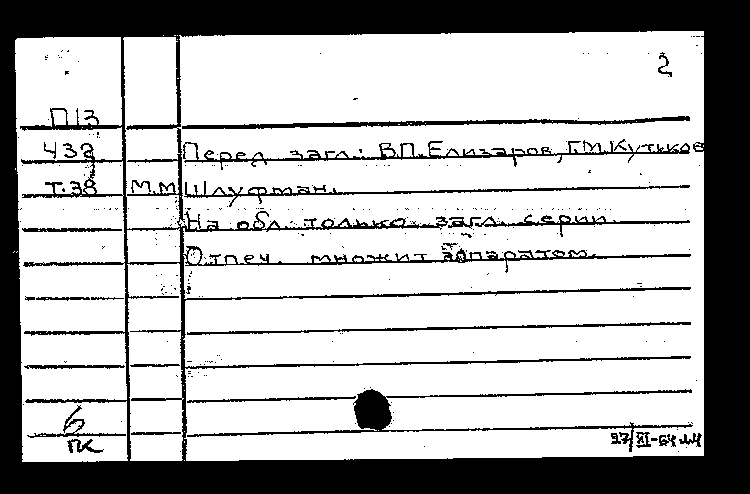 2
П13
432 Перед загл.: В.П.Елизаров, Г.М.Кутьков
Т.38 М.М Шлуфман.
На обл. только загл. серии
Отпеч. множит аппаратом.
6
ПК
27/XI-64